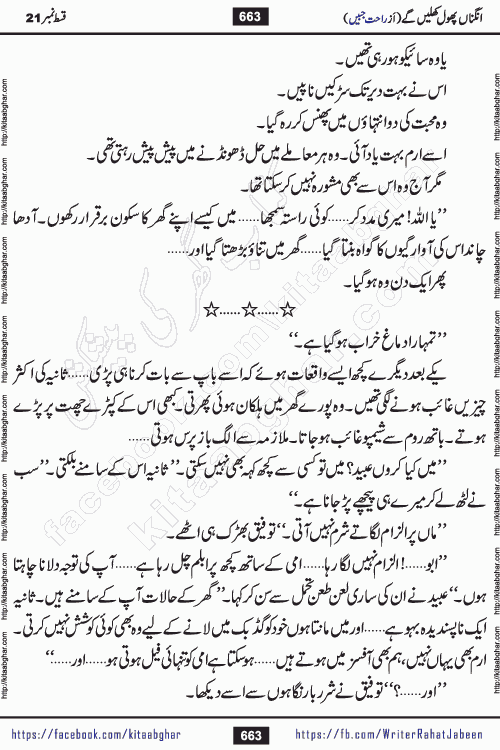 انگناں پھول کھلیں گے (از راحت جبیں)
663
قسط نمبر 21
یا وہ سائیکو ہو رہی تھیں۔
اس نے بہت دیر تک سڑکیں ناپیں۔
وہ محبت کی دو انتہاؤں میں پھنس کر رہ گیا۔
اسے ارم بہت یاد آئی۔ وہ ہر معاملے میں حل ڈھونڈنے میں پیش پیش رہتی تھی۔
مگر آج وہ اس سے بھی مشورہ نہیں کر سکتا تھا۔
”یا اللہ! میری مدد کر......کوئی راستہ سمجھا...... میں کیسے اپنے گھر کا سکون برقرار رکھوں۔ آدھا
چاند اس کی آوارگیوں کا گواہ بنتا گیا......گھر میں تناؤ بڑھتا گیا اور......
پھر ایک دن وہ ہو گیا۔
☆......☆......☆
”تمہارا دماغ خراب ہو گیا ہے۔“
یکے بعد دیگرے کچھ ایسے واقعات ہوئے کہ اسے باپ سے بات کرنا ہی پڑی......ثانیہ کی اکثر
چیزیں غائب ہونے لگی تھیں۔ وہ پورے گھر میں ہلکان ہوئی پھرتی۔ کبھی اس کے کپڑے چھت پر پڑے
ہوتے۔ باتھ روم سے شیمپو غائب ہو جاتا۔ ملازمہ سے الگ باز پرس ہوتی......
”میں کیا کروں عبید؟ میں تو کسی سے کچھ کہہ بھی نہیں سکتی۔“ ثانیہ اس کے سامنے بلکتی۔ ”سب
نے لٹھ لے کر میرے ہی پیچھے پڑ جانا ہے۔“
”ماں پر الزام لگاتے شرم نہیں آتی۔“ توفیق بھڑک ہی اٹھے۔
”ابو......! الزام نہیں لگا رہا......امی کے ساتھ کچھ پرابلم چل رہا ہے......آپ کی توجہ دلانا چاہتا
ہوں۔“ عبید نے ان کی ساری لعن طعن تحمل سے سن کر کہا۔ ”گھر کے حالات آپ کے سامنے ہیں۔ ثانیہ
ایک ناپسندیدہ بہو ہے......اور میں مانتا ہوں خود کو گڈ بک میں لانے کے لیے وہ بھی کوئی کوشش نہیں کرتی۔
ارم بھی یہاں نہیں، ہم بھی آفسز میں ہوتے ہیں......ہو سکتا ہے امی کو تنہائی فیل ہوتی ہو......اور......“
”اور......؟“ توفیق نے شرر بار نگاہوں سے اسے دیکھا۔
https://facebook.com/kitaabghar
663
https://fb.com/WriterRahatJabeen
http://kitaabghar.com http://kitaabghar.com http://kitaabghar.com http://kitaabghar.com http://kitaabghar.com http://kitaabghar.com http://kitaabghar.com http://kitaabghar.com
http://kitaabghar.com http://kitaabghar.com http://kitaabghar.com http://kitaabghar.com http://kitaabghar.com http://kitaabghar.com http://kitaabghar.com http://kitaabghar.com